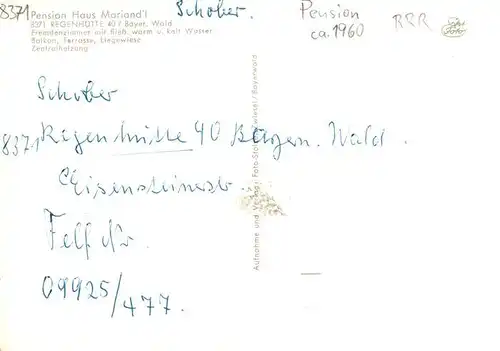 8371 Pension Haus Mariandl
8371 REGENHÜTTE 40 / Bayer. Wald
Fremdenzimmer mit fließ. warm u. kalt Wasser
Balkon, Terrasse, Liegewiese
Zentralheizung
Schober.
Pension
ca. 1960
RRR
Schober
8371 Regenhütte 40 Bayern. Wald.
Eisensteinerstr.
Telf Nr.
09925/477.